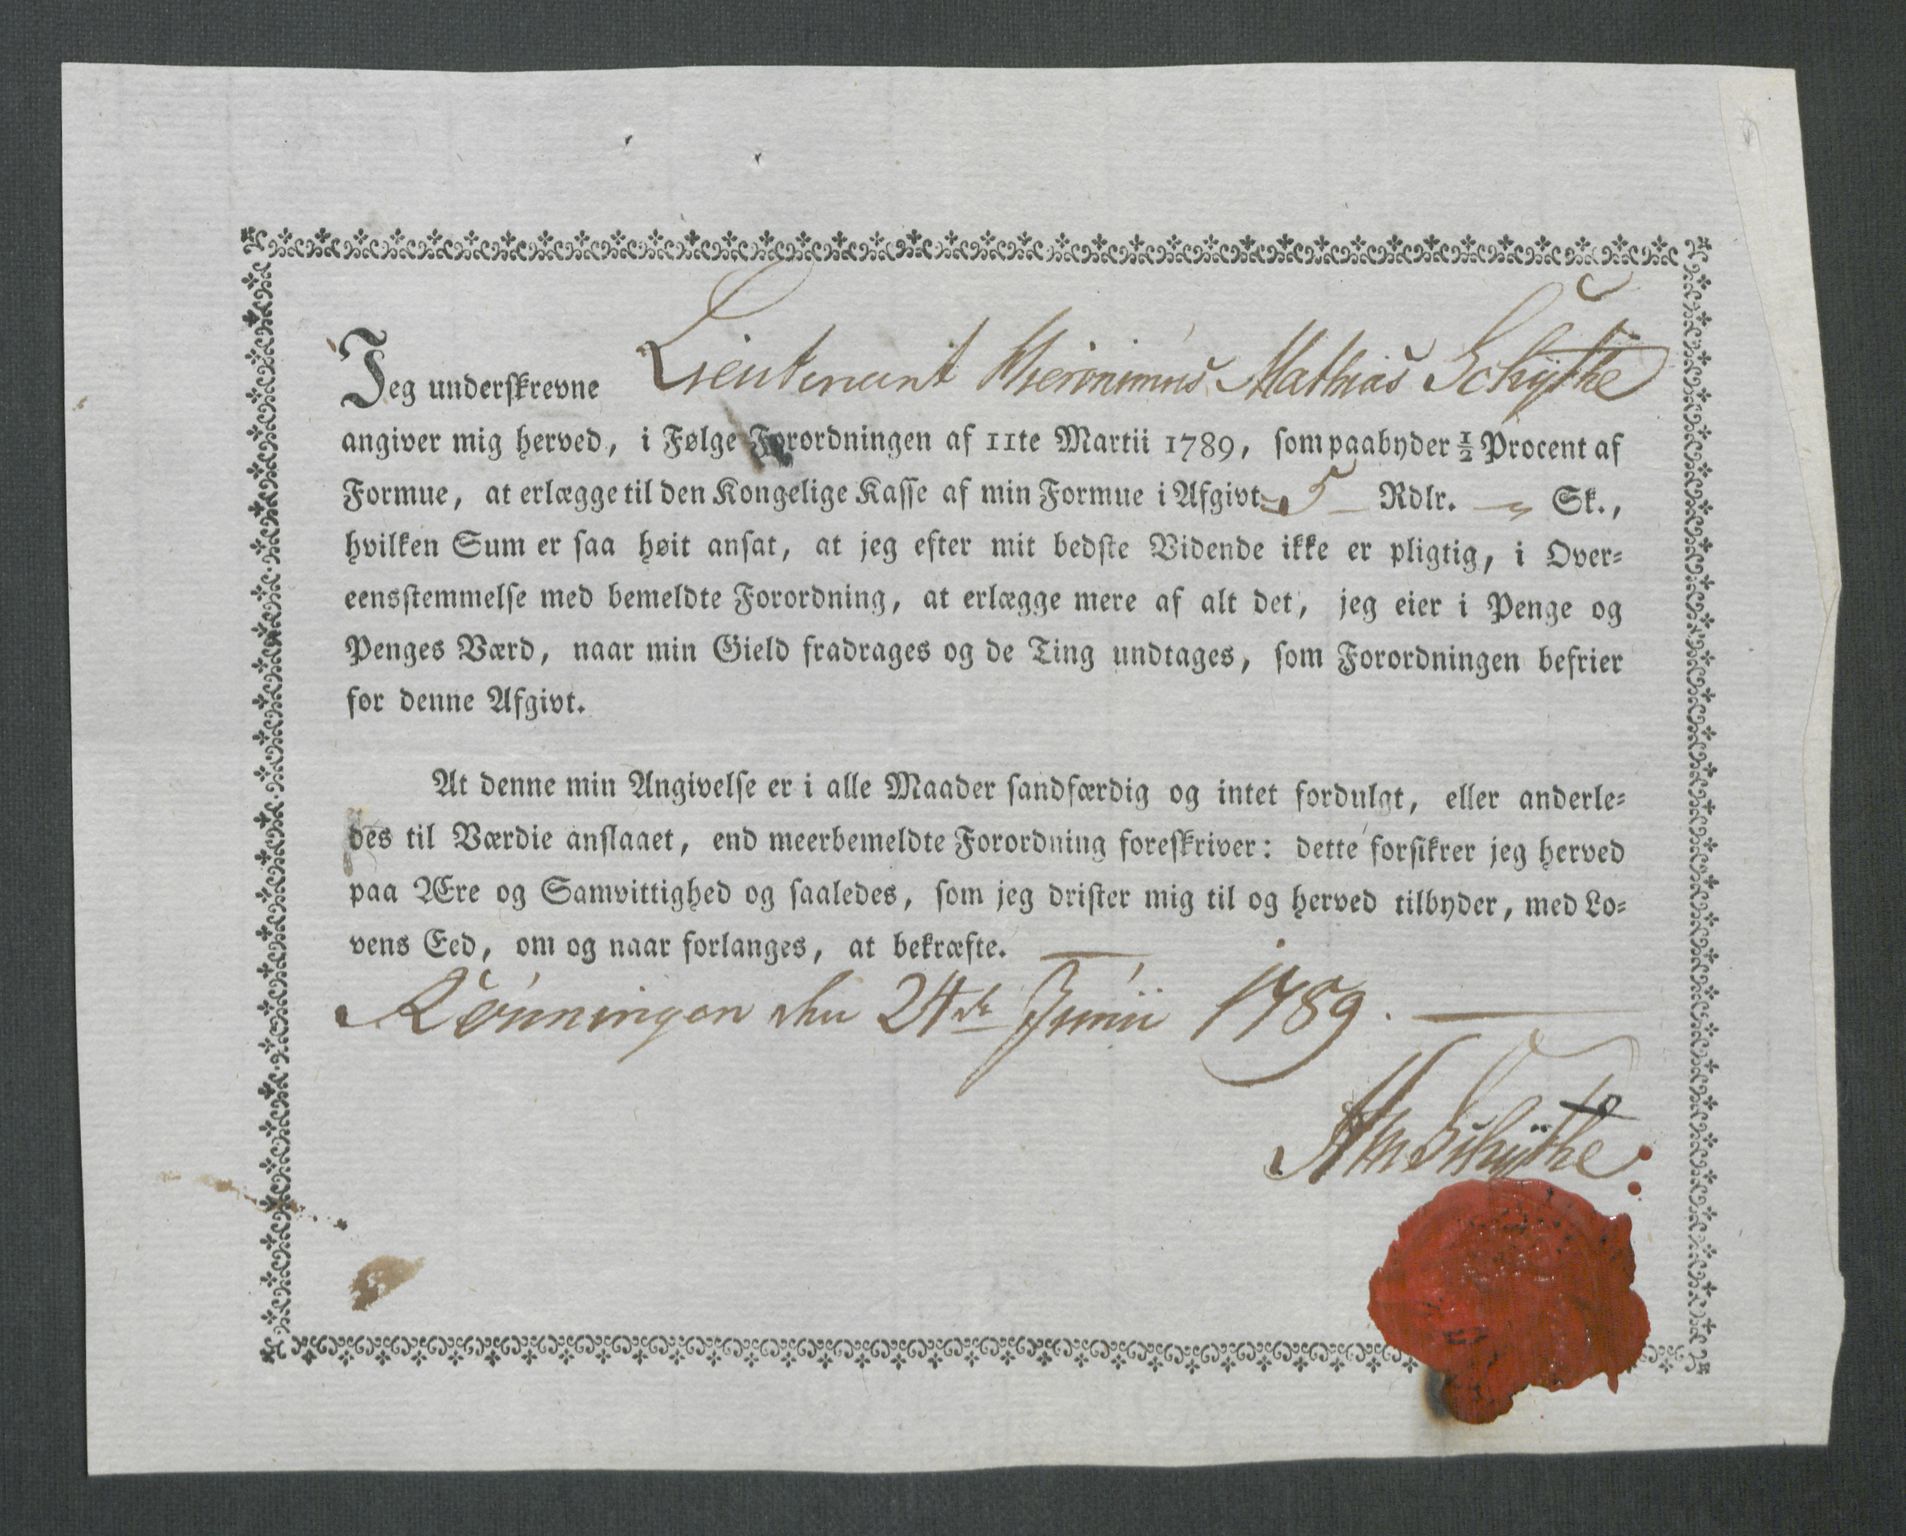 Jeg underskrevne Lieutenant Hieronimus Mathias Schÿthe
angiver mig herved, i Følge Forordningen af 11te Martii 1789, som paabyder ½ Procent af
Formue, at erlægge til den Kongelige Kasse af min Formue i Afgivt 5 Rdlr. — Sk.,
hvilken Sum er saa høit ansat, at jeg efter mit bedste Vidende ikke er pligtig, i Over-
eensstemmelse med bemeldte Forordning, at erlægge mere af alt det, jeg eier i Penge og
Penges Værd, naar min Gield fradrages og de Ting undtages, som Forordningen befrier
for denne Afgivt.
At denne min Angivelse er i alle Maader sandfærdig og intet fordulgt, eller anderle-
des til Værdie anslaaet, end meerbemeldte Forordning foreskriver: dette forsikrer jeg herved
paa Ære og Samvittighed og saaledes, som jeg drister mig til og herved tilbyder, med Lo-
vens Eed, om og naar forlanges, at bekræfte.
Rønningen den 24de Junii 1789.
HM Schÿthe